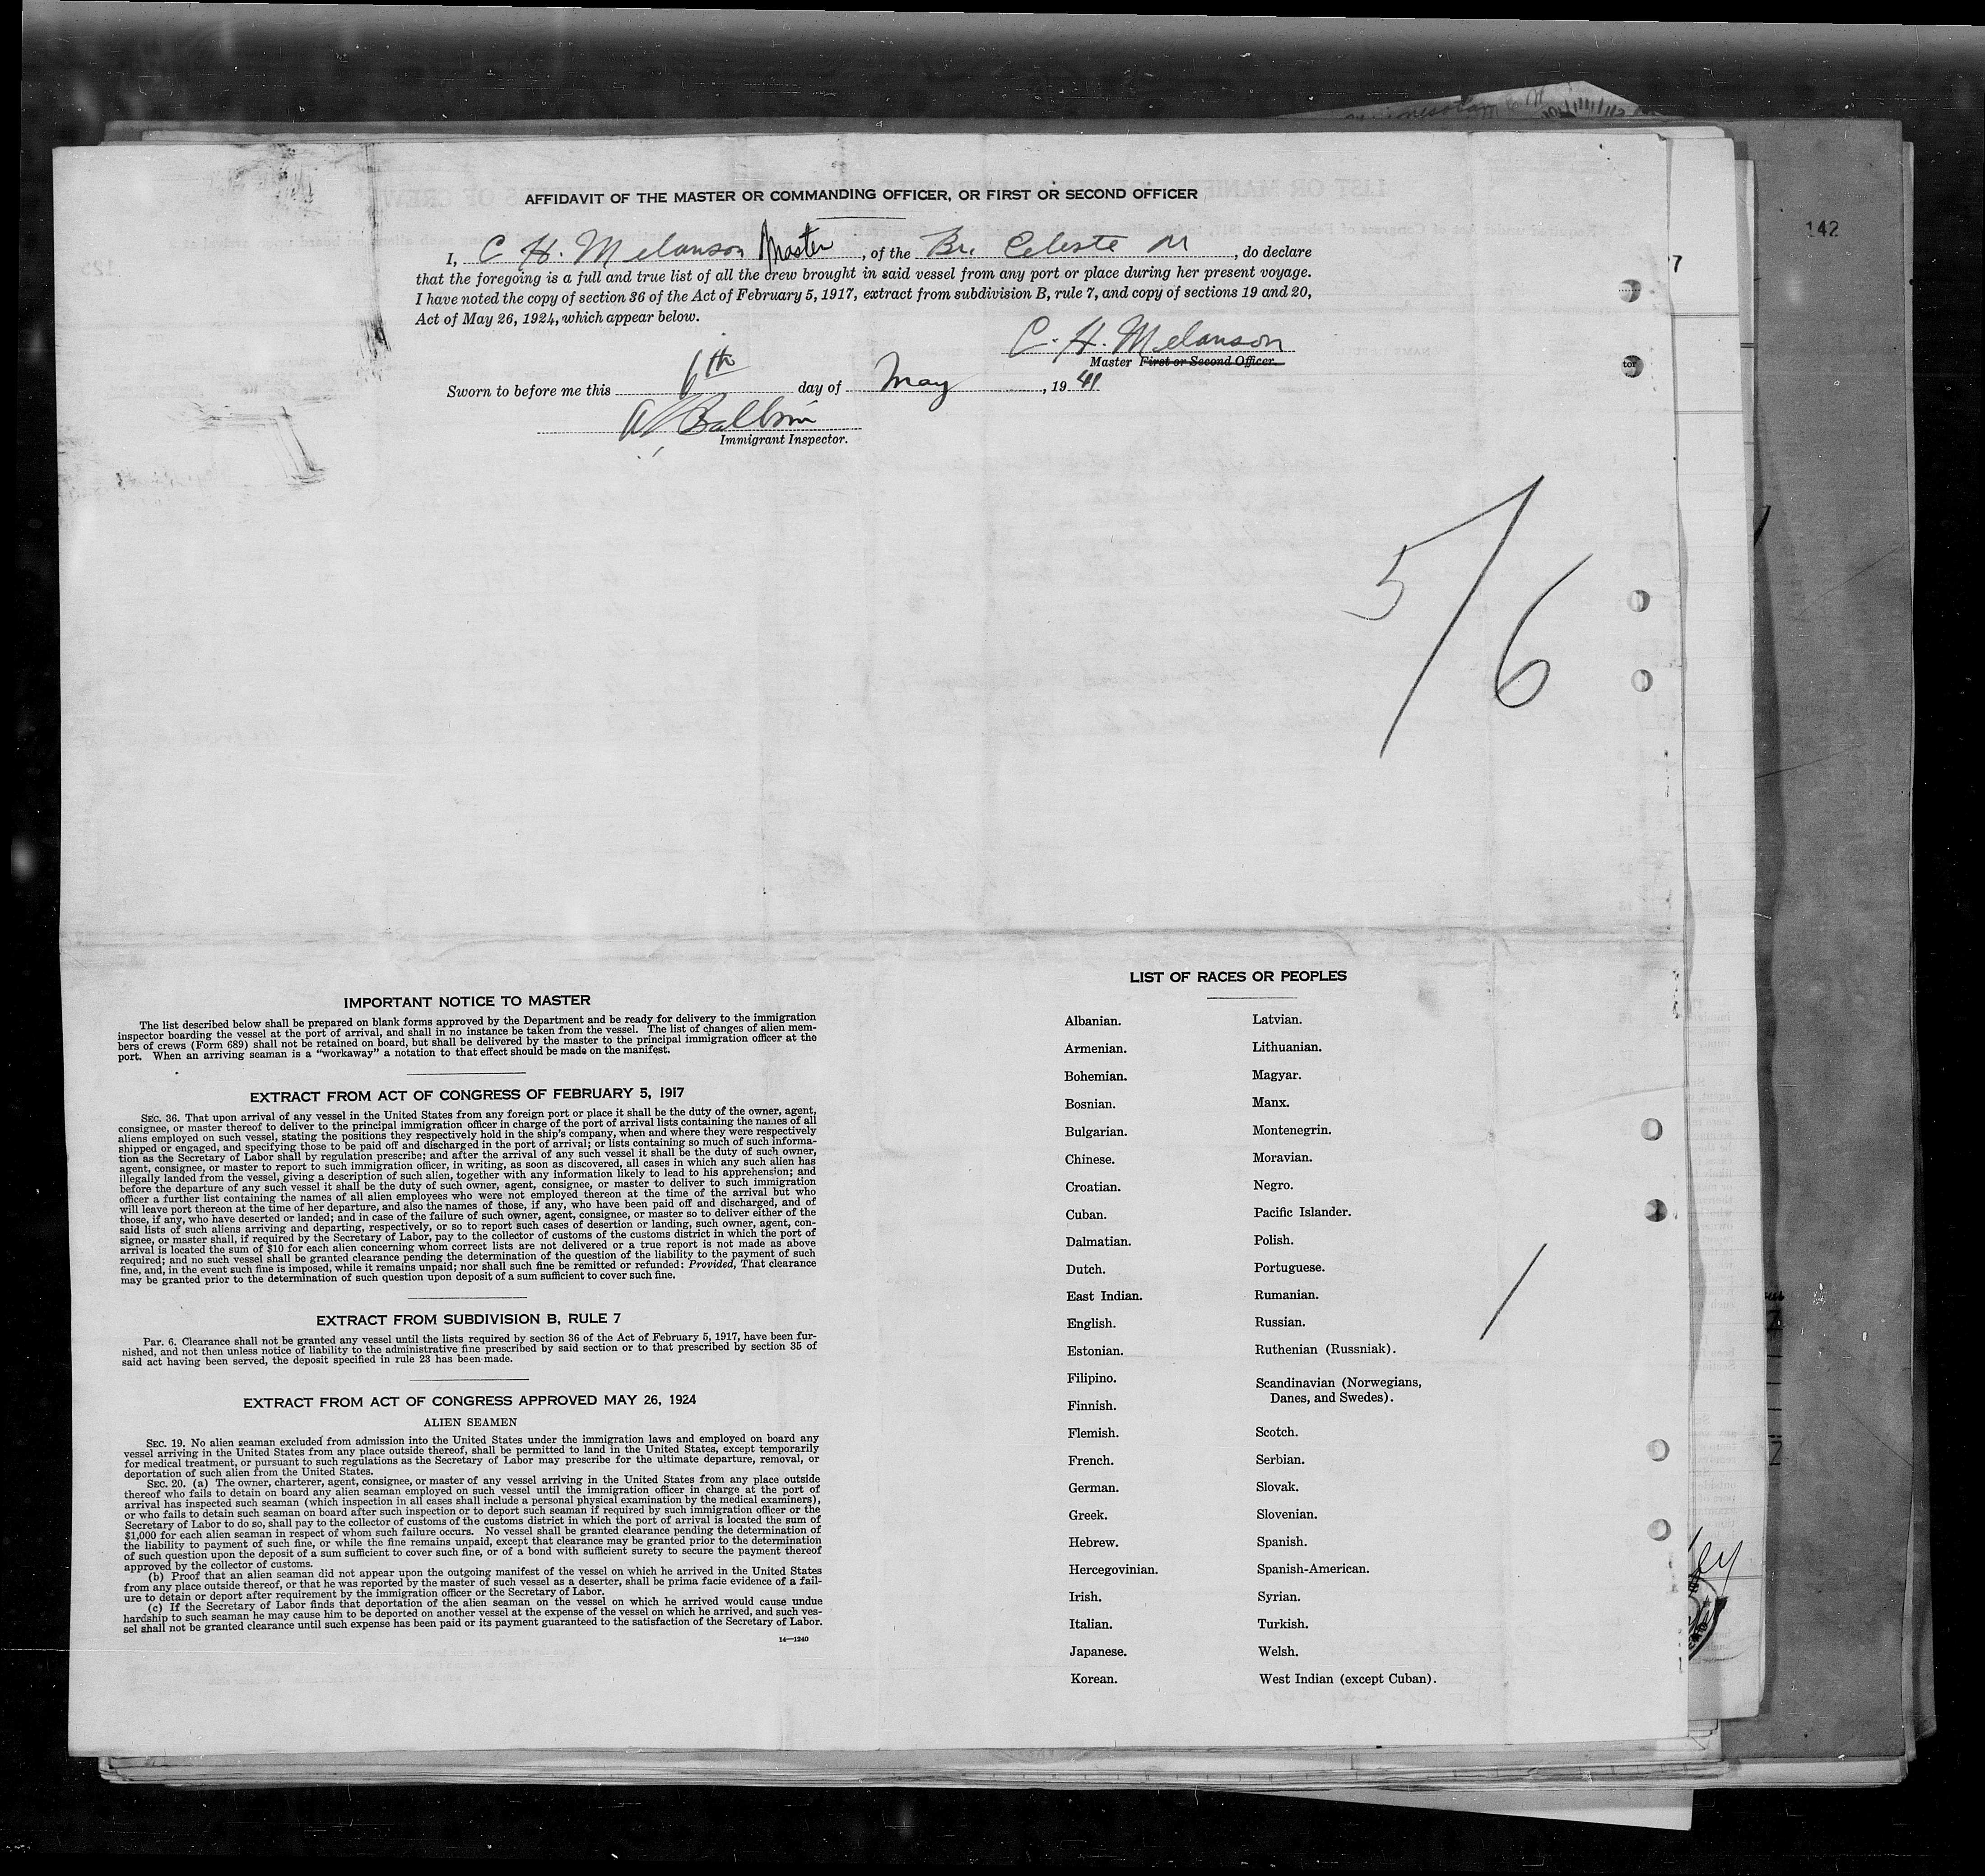 142
7
tor
AFFIDAVIT OF THE MASTER OR COMMANDING OFFICER, OR FIRST OR SECOND OFFICER
I, C. H. Melanson Master, of the Br. Celeste M, do declare
that the foregoing is a full and true list of all the crew brought in said vessel from any port or place during her present voyage.
I have noted the copy of section 36 of the Act of February 5, 1917, extract from subdivision B, rule 7, and copy of sections 19 and 20,
Act of May 26, 1924, which appear below.
C. H. Melanson
Master First or Second Officer.
Sworn to before me this 6th day of May, 1941
Immigrant Inspector.
5/6
IMPORTANT NOTICE TO MASTER
The list described below shall be prepared on blank forms approved by the Department and be ready for delivery to the immigration
inspector boarding the vessel at the port of arrival, and shall in no instance be taken from the vessel. The list of changes of alien mem-
bers of crews (Form 689) shall not be retained on board, but shall be delivered by the master to the principal immigration officer at the
port. When an arriving seaman is a "workaway" a notation to that effect should be made on the manifest.
EXTRACT FROM ACT OF CONGRESS OF FEBRUARY 5, 1917
SEC. 36. That upon arrival of any vessel in the United States from any foreign port or place it shall be the duty of the owner, agent,
consignee, or master thereof to deliver to the principal immigration officer in charge of the port of arrival lists containing the names of all
aliens employed on such vessel, stating the positions they respectively hold in the ship's company, when and where they were respectively
shipped or engaged, and specifying those to be paid off and discharged in the port of arrival; or lists containing so much of such informa-
tion as the Secretary of Labor shall by regulation prescribe; and after the arrival of any such vessel it shall be the duty of such owner,
agent, consignee, or master to report to such immigration officer, in writing, as soon as discovered, all cases in which any such alien has
illegally landed from the vessel, giving a description of such alien, together with any information likely to lead to his apprehension; and
before the departure of any such vessel it shall be the duty of such owner, agent, consignee, or master to deliver to such immigration
officer a further list containing the names of all alien employees who were not employed thereon at the time of the arrival but who
will leave port thereon at the time of her departure, and also the names of those, if any, who have been paid off and discharged, and of
those, if any, who have deserted or landed; and in case of the failure of such owner, agent, consignee, or master so to deliver either of the
said lists of such aliens arriving and departing, respectively, or so to report such cases of desertion or landing, such owner, agent, con-
signee, or master shall, if required by the Secretary of Labor, pay to the collector of customs of the customs district in which the port of
arrival is located the sum of $10 for each alien concerning whom correct lists are not delivered or a true report is not made as above
required; and no such vessel shall be granted clearance pending the determination of the question of the liability to the payment of such
fine, and, in the event such fine is imposed, while it remains unpaid; nor shall such fine be remitted or refunded: Provided, That clearance
may be granted prior to the determination of such question upon deposit of a sum sufficient to cover such fine.
EXTRACT FROM SUBDIVISION B, RULE 7
Par. 6. Clearance shall not be granted any vessel until the lists required by section 36 of the Act of February 5, 1917, have been fur-
nished, and not then unless notice of liability to the administrative fine prescribed by said section or to that prescribed by section 35 of
said act having been served, the deposit specified in rule 23 has been made.
EXTRACT FROM ACT OF CONGRESS APPROVED MAY 26, 1924
ALIEN SEAMEN
SEC. 19. No alien seaman excluded from admission into the United States under the immigration laws and employed on board any
vessel arriving in the United States from any place outside thereof, shall be permitted to land in the United States, except temporarily
for medical treatment, or pursuant to such regulations as the Secretary of Labor may prescribe for the ultimate departure, removal, or
deportation of such alien from the United States.
SEC. 20. (a) The owner, charterer, agent, consignee, or master of any vessel arriving in the United States from any place outside
thereof who fails to detain on board any alien seaman employed on such vessel until the immigration officer in charge at the port of
arrival has inspected such seaman (which inspection in all cases shall include a personal physical examination by the medical examiners),
or who fails to detain such seaman on board after such inspection or to deport such seaman if required by such immigration officer or the
Secretary of Labor to do so, shall pay to the collector of customs of the customs district in which the port of arrival is located the sum of
$1,000 for each alien seaman in respect of whom such failure occurs. No vessel shall be granted clearance pending the determination of
the liability to payment of such fine, or while the fine remains unpaid, except that clearance may be granted prior to the determination
of such question upon the deposit of a sum sufficient to cover such fine, or of a bond with sufficient surety to secure the payment thereof
approved by the collector of customs.
(b) Proof that an alien seaman did not appear upon the outgoing manifest of the vessel on which he arrived in the United States
from any place outside thereof, or that he was reported by the master of such vessel as a deserter, shall be prima facie evidence of a fail-
ure to detain or deport after requirement by the immigration officer or the Secretary of Labor.
(c) If the Secretary of Labor finds that deportation of the alien seaman on the vessel on which he arrived would cause undue
hardship to such seaman he may cause him to be deported on another vessel at the expense of the vessel on which he arrived, and such ves-
sel shall not be granted clearance until such expense has been paid or its payment guaranteed to the satisfaction of the Secretary of Labor.
14—1240
LIST OF RACES OR PEOPLES
Albanian.
Armenian.
Bohemian.
Bosnian.
Bulgarian.
Chinese.
Croatian.
Cuban.
Dalmatian.
Dutch.
East Indian.
English.
Estonian.
Filipino.
Finnish.
Flemish.
French.
German.
Greek.
Hebrew.
Hercegovinian.
Irish.
Italian.
Japanese.
Korean.
Latvian.
Lithuanian.
Magyar.
Manx.
Montenegrin.
Moravian.
Negro.
Pacific Islander.
Polish.
Portuguese.
Rumanian.
Russian.
Ruthenian (Russniak).
Scandinavian (Norwegians,
Danes, and Swedes).
Scotch.
Serbian.
Slovak.
Slovenian.
Spanish.
Spanish-American.
Syrian.
Turkish.
Welsh.
West Indian (except Cuban).